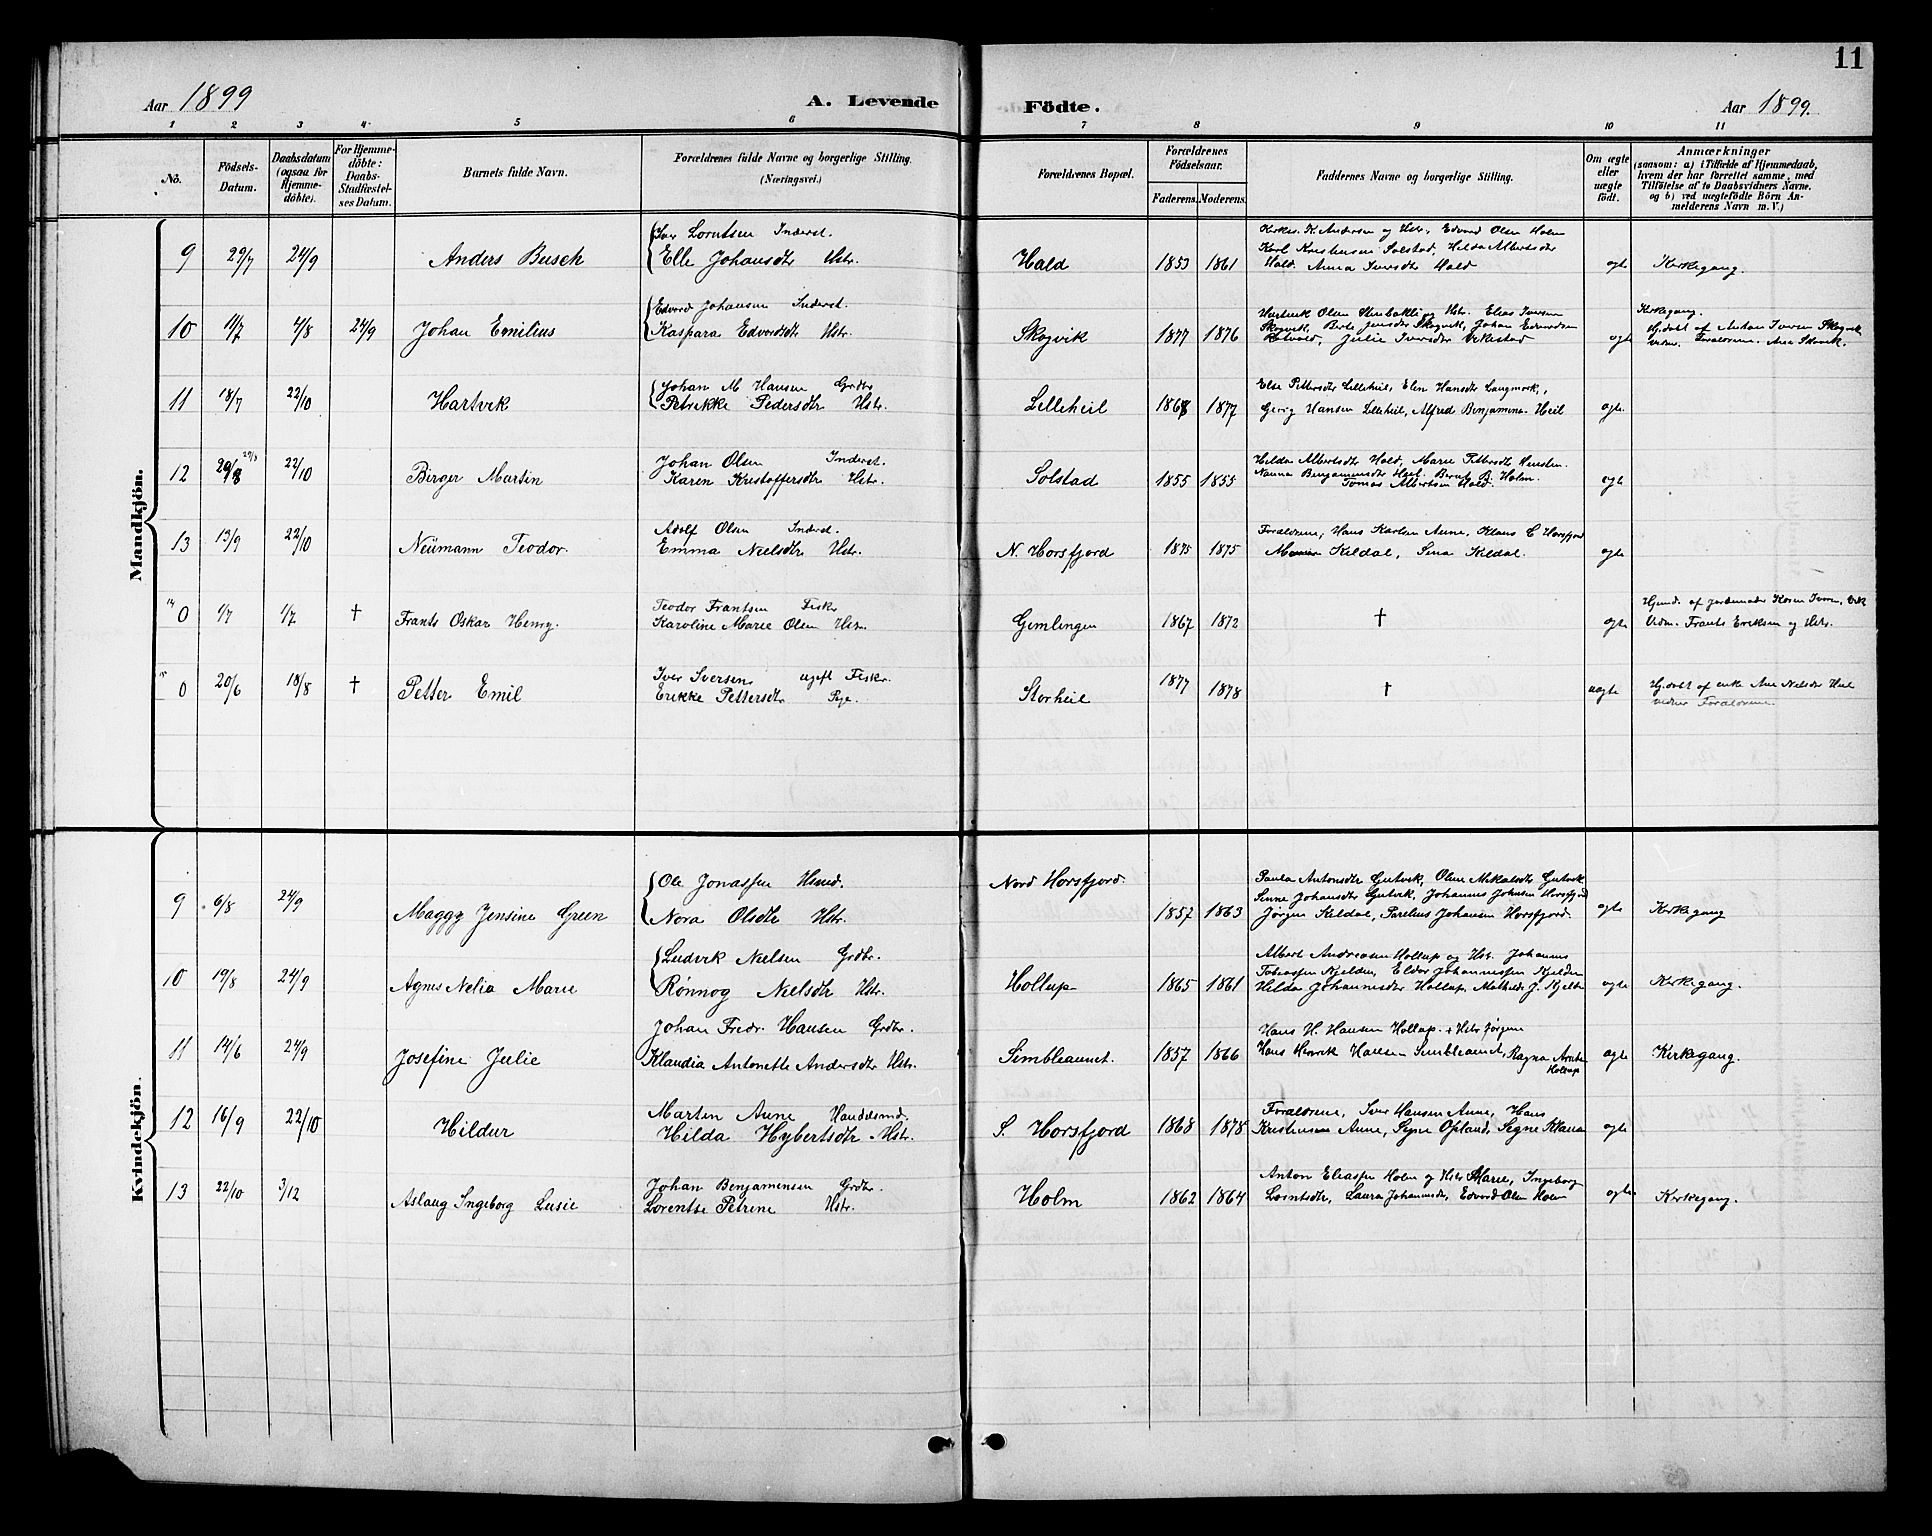 11
Aar 1899
A. Levende
Födte.
Aar 1899.
1 2 3 4 5 6 7 8 9 10 11
No.
Födsels-Datum.
Daabsdatum (ogsaa for Hjemmedöbte).
For Hjemmedöbte: Daabs-Stadfæstelses Datum.
Barnets fulde Navn.
Forældrenes fulde Navne og borgerlige Stilling. (Næringsvei.)
Forældrenes Bopæl.
Forældrenes Födselsaar.
Faderens. Moderens.
Faddernes Navne og borgerlige Stilling.
Om ægte eller uægte födt.
Anmærkninger (saasom: a) i Tilfælde af Hjemmedaab, hvem der har forrettet samme, med Tilföielse af to Daabsvidners Navne, og b) ved uægtefödte Börn Anmelderens Navn m. V.)
Mandkjön.
9 29/7 24/9 Anders Busch
Iver Lorntsen Inderst.
Elle Johansdtr Hstr.
Hald 1853 1861
Kirkes. K. Andersen og Hstr, Edvard Olsen Holm
Karl Kristensen Solstad, Hilda Albertsdtr
Hald. Anna Iversdtr Hald
ægte Kirkegang.
10 11/7 4/8 24/9 Johan Emilius
Edvard Johansen Inderst.
Kaspara Edvardsdtr Hstr.
Skogvik 1877 1876
Hartvik Olsen Stenbakli og Hstr. Elias Iversen
Skogvik, Berte Jensdtr Skogvik, Johan Edvardsen
Julie Iversdtr
ægte
Kirkegang.
Hj.døbt af Anton Iversen Skogvik
vidner. Forældrene.
11 18/7 22/10 Hartvik
Johan M Hansen Grdbr
Petrikke Pedersdtr Hstr.
Lilleheil 1868 1877
Else Pettersdtr Lilleheil, Elen Hansdtr Langmork,
Georg Hansen Lilleheil, Alfred Benjamins. Heil
ægte.
12 29/8 29/8 22/10 Birger Martin
Johan Olsen Inderst.
Karen Kristoffersdtr Hstr.
Solstad 1855 1855
Hilda Albertsdtr Hald, Marie Pettersdtr
Nanna Benjaminsdtr Heil. Bernt B. Holm.
Tomas Albertsen Hald.
ægte
13 13/9 22/10 Neümann Teodor.
Adolf Olsen Inderst.
Emma Nielsdtr Hstr.
N. Horsfjord 1875 1875
Forældrene, Hans Karlsen Aune, Klaus C Horsfjord
Kildal, Sina Kildal.
ægte
14 0 1/7 1/7 † Frants Oskar Henry.
Teodor Frantsen Fisker
Karoline Marie Olsen Hstr.
Gimlingen 1867 1872 † ægte
Hjemd. af jordemoder Karen Iversen, Vik
Vidn. Frants Eriksen og Hstr.
15 0 20/6 18/8 † Petter Emil
Iver Iversen ugift Fisker.
Erikke Pettersdtr Pige.
Storheil 1877 1878 † uægte
Hj.døbt af enke Ane Nielsdtr Heil
vidner Forældrene.
Kvindekjön.
9 6/8 24/9 Maggy Jensine Green
Ole Jonassen Hsmd.
Nora Olsdtr Hstr.
Nord Horsfjord. 1857 1863
Paula Antonsdtr Gutvik, Oline Mikalsdtr Gutvik
Sinne Johansdtr Gutvik, Johannes Johnsen Horsfjord
Jörgen Kildal, Parelius Johansen Horsfjord.
ægte Kirkegang
10 19/8 24/9 Agnes Nelia Marie
Ludvik Nielsen Grdbr.
Rønnog Nielsdtr Hstr.
Hollup 1865 1861
Albert Andreasen Hollup og Hstr. Johannes
Tobiassen Kjelden, Eldor Johannessen Kjelden
Hilda Johannesdtr Hollup, Mathilde J. Kjelden
ægte Kirkegang.
11 14/6 24/9 Josefine Julie
Johan Fredr. Hansen Grdbr.
Klaudia Antonette Andersdtr Hstr.
Simbleaunet. 1857 1866
Hans H. Hansen Hollup. + Hstr Jørgine
Hans Henrik Hansen Simbleaunet, Ragna
Hollup
ægte Kirkegang.
12 16/9 22/10 Hildur
Martin Aune Handelsmd.
Hilda Hybertsdtr Hstr.
S. Horsfjord 1868 1878
Forældrene, Iver Hansen Aune, Hans
Kristensen Aune, Signe Opland, Signe Klausen
ægte
13 22/10 3/12 Aslaug Ingeborg Lusie
Johan Benjaminsen Grdbr.
Lorentse Petrine Hstr.
Holm 1862 1864
Anton Eliassen Holm og Hstr Marie, Ingeborg
Lorntsdtr, Laura Johannsdtr, Edvard Olsen Holm
ægte. Kirkegang.